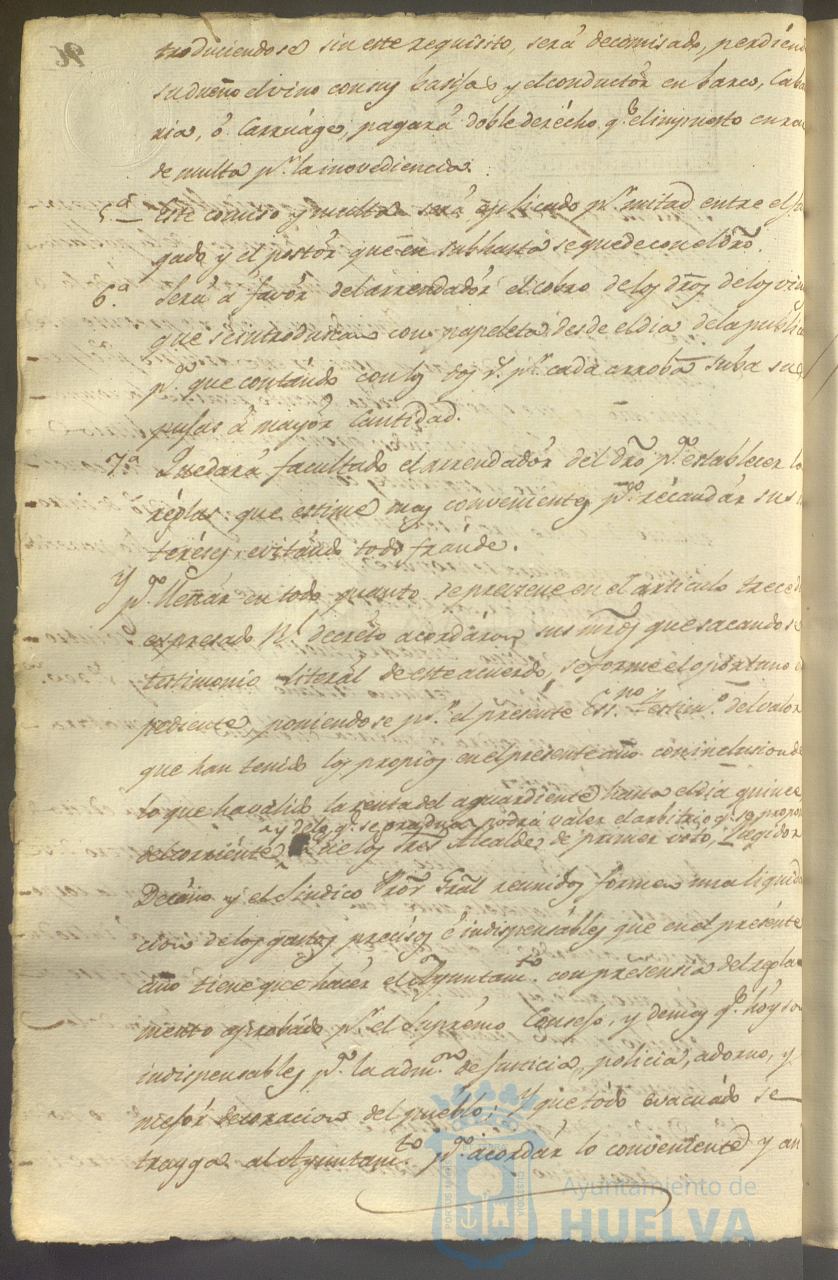 troduciendose sin este requisito, será decomisado, perdiend
su dueño el vino con sus basijas y el conductor en barco, Caba
ria, ó Carruage, pagará doble derécho q.e el impuesto en ra
de multa p.r la inovediencia.
5.a Este comiso y multa será aplicado p.r mitad entre el
gado y el postór que en subhasta se quede con el dro.
6.a Será á favór del arrendadór el cobro de los dros de los vin
que se introduscan con papeleta desde el dia de la public
p.a que contándo con los dos r.s p.r cada arroba suba sus
pujas á mayór Cantidad.
7.a Quedará facultado el arrendadór del dro p.a establecer la
réglas que estime mas convenientes p.a recaudár sus in
teréses, evitándo todo fráude.
Y p.a llenár en todo quanto se previene en el artículo trece d
expresado R.l decréto acordáron sus mrds que sacandose
testimonio literál de este acuerdo, se forme el oportuno e
pediente, poniendose p.r el presente Ess.no testim.o del valor
que han tenido los propios en el presente año con inclusion de
lo que ha valido la renta del aguardiente hasta el dia quince
y de lo q.e se pradua podrá valer el arbitrio q.e se propon
del corriénte que los Sres Alcaldes de primer voto, Regidor
Decáno y el Síndico Pror Gral reunidos formen una liquida
cion de los gastos precisos é indispensábles que en el presénte
año tiene que hacér el Ayuntam.to con presencia del regla
mento aprobádo p.r el Suprémo Consejo, y demas q.e hoy so
indispensables p.a la adm.on de Justicia, policia, adorno, y
mejór decoracion del pueblo; Y que todo evacuádo se
trayga al Ayuntam.to p.a acordár lo conveniente y án
Ayuntamiento de
HUELVA